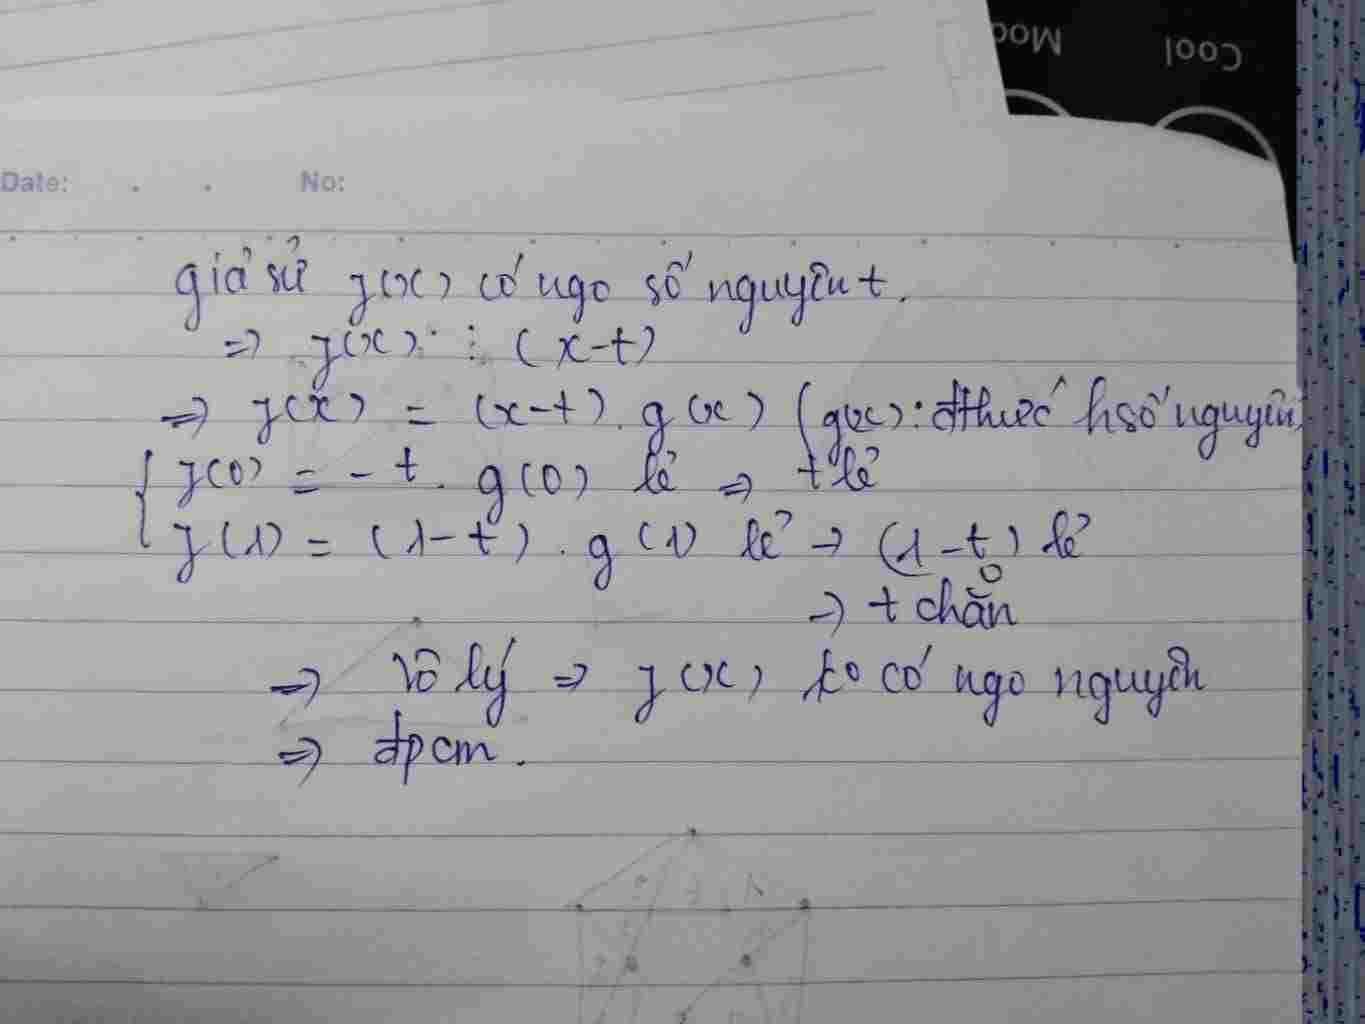 Mod
Cool
Date: . . No:
giả sử f(x) có ngo số nguyên t.
=> f(x) ⋮ (x-t)
=> f(x) = (x-t). g(x) (g(x): đthức hsố nguyên)
{ f(0) = -t. g(0) lẻ => t lẻ
f(1) = (1-t). g(1) lẻ -> (1-t) lẻ
=> t chẵn
=> Vô lý => f(x) ko có ngo nguyên
=> đpcm.